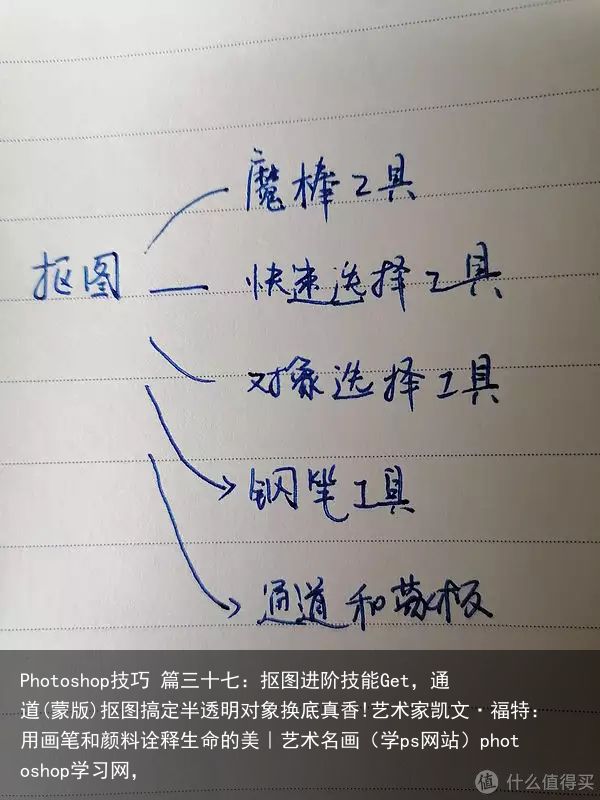 魔棒工具
抠图
快速选择工具
对象选择工具
钢笔工具
通道和蒙板
Photoshop技巧 篇三十七：抠图进阶技能Get，通
道(蒙版)抠图搞定半透明对象换底真香!艺术家凯文·福特：
用画笔和颜料诠释生命的美｜艺术名画（学ps网站）phot
oshop学习网，
值 什么值得买